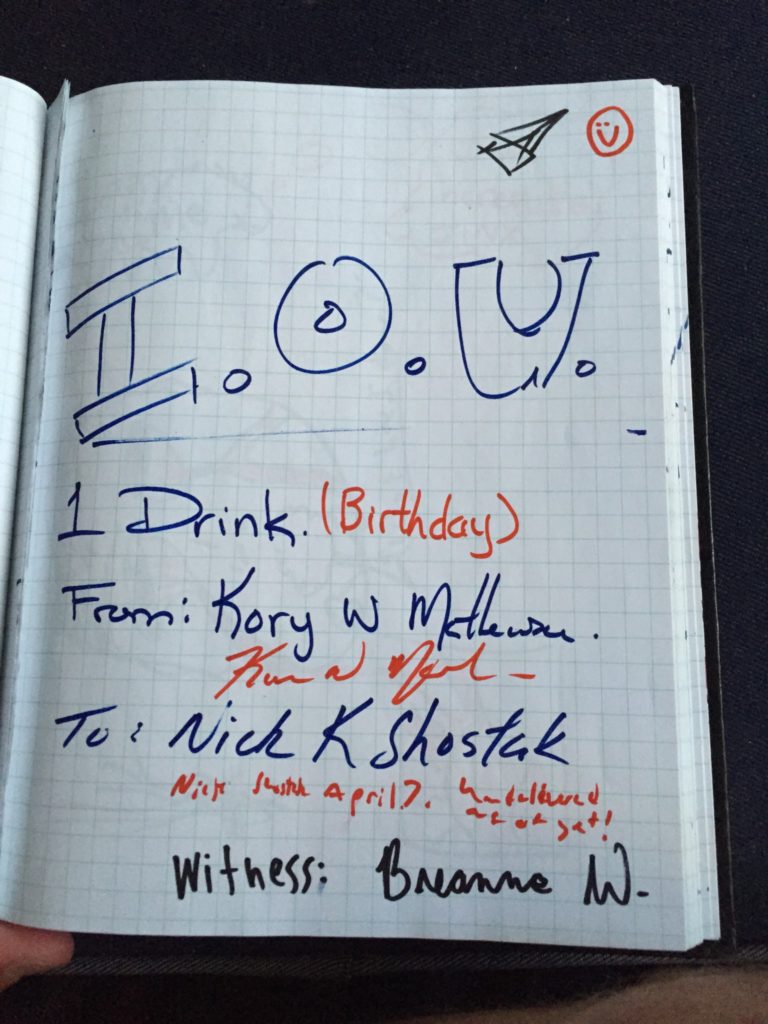 I.O.U.
1 Drink. (Birthday)
From: Kory W Mathewson.
To: Nick K Shostak
Nick Shostak April 7. Undelivered
as of yet!
Witness: Breanne W.